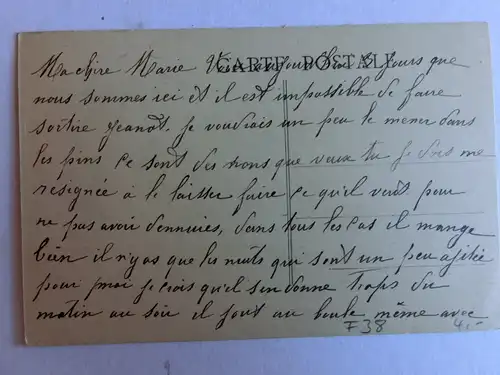 CARTE POSTALE
Ma chère Marie Voici aujourd'hui 8 jours que
nous sommes ici et il est impossible de faire
sortire Jeanot. je voudrais un peu le mener dans
les pins ce sont des nons que veux tu je dois me
resignée à le laisser faire ce qu'il veut pour
ne pas avoir d'ennuies, dans tous les cas il mange
bien il n'y as que les nuits qui sont un peu agitée
pour moi je crois qu'il s'en donne trops du
matin au soir il fout au boule même avec
F38 4,-